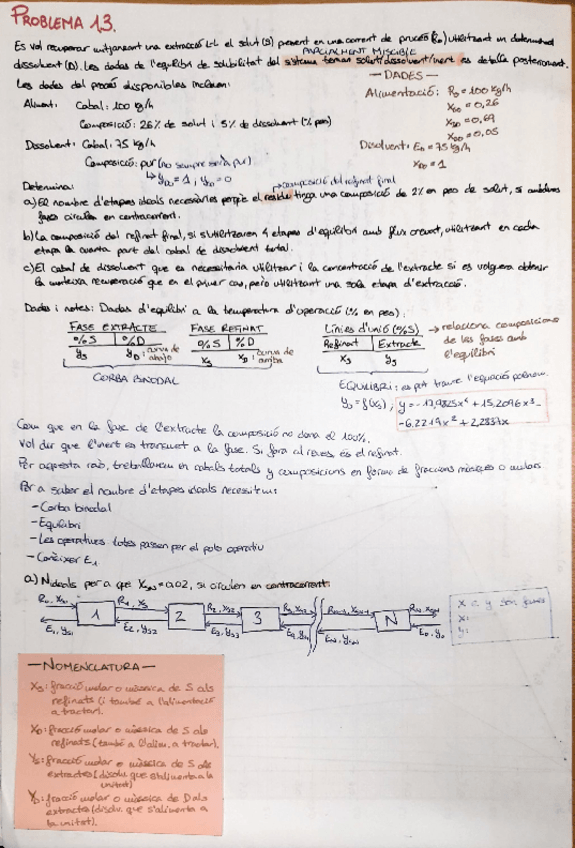 PROBLEMA 13.
Es vol recuperar mitjançant una extracció L-L el solut (S) present en una corrent de procés (R₀) utilitzant un determinat
PARCIALMENT MISCIBLE
dissolvent (D). Les dades de l'equilibri de solubilitat del sistema ternari solut/dissolvent/inert es detalla posteriorment.
Les dades del procés disponibles inclouen:
— DADES —
Aliment: Cabal: 100 kg/h
Alimentació: R₀ = 100 kg/h
Composició: 26% de solut i 5% de dissolvent (% pes)
x = 0,26
x = 0,69
x = 0,05
Dissolvent: Cabal: 75 kg/h
Disolvent: E₀ = 75 kg/h
Composició: pur (no sempre serà pur)
↳ y = 1, y = 0
x = 1
Determina:
→ composició del refinat final
a) El nombre d'etapes ideals necessàries perquè el residu tinga una composició de 2% en pes de solut, si ambdues
fases circulen en contracorrent.
b) La composició del refinat final, si s'utilitzaren 4 etapes d'equilibri amb flux creuat, utilitzant en cada
etapa la quarta part del cabal de dissolvent total.
c) El cabal de dissolvent que es necessitaria utilitzar i la concentració de l'extracte si es volguera obtenir
la mateixa recuperació que en el primer cas, però utilitzant una sola etapa d'extracció.
Dades i notes: Dades d'equilibri a la temperatura d'operació (% en pes):
FASE EXTRACTE FASE REFINAT Línies d'unió (%S) → relaciona composicions
%S %D %S %D Refinat Extracte de les fases amb
y_S y_D: curva de abajo x_S x_D: curva de arriba x_S y_S l'equilibri
CORBA BINODAL
EQUILIBRI: es pot traure l'equació polinòm.
y_S = f(x_S); y = -17,9825x⁴ + 15,2096x³ -
-6,2219x² + 2,2837x
Com que en la fase de l'extracte la composició no dona el 100%.
Vol dir que l'inert es transmet a la fase. Si fora al revés és el refinat.
Per aquesta raó, treballarem en cabals totals y composicions en forma de fraccions màssiques o molars.
Per a saber el nombre d'etapes ideals necessitem:
- Corba binodal
- Equilibri
- Les operatives: totes passen per el polo operatiu
- Conèixer E₁
a) N ideals per a que x_SN = 0,02, si circulen en contracorrent.
R₀, x_S0 R₁, x_S R₂, x_S2 R₃, x_S3 R_N-1, x_SN-1 R_N, x_SN
1 2 3 N
E₁, y_S1 E₂, y_S2 E₃, y_S3 E_N, y_SN E₀, y₀
x e y són
x:
y:
— NOMENCLATURA —
X_S: fracció molar o màssica de S als
refinats (i també a l'alimentació
a tractar).
X_D: fracció molar o màssica de S als
refinats (també a l'alim. a tractar).
Y_S: fracció molar o màssica de S als
extractes (disolv. que s'alimenta a la
unitat)
Y_D: fracció molar o màssica de D als
extractes (disolv. que s'alimenta a
la unitat).